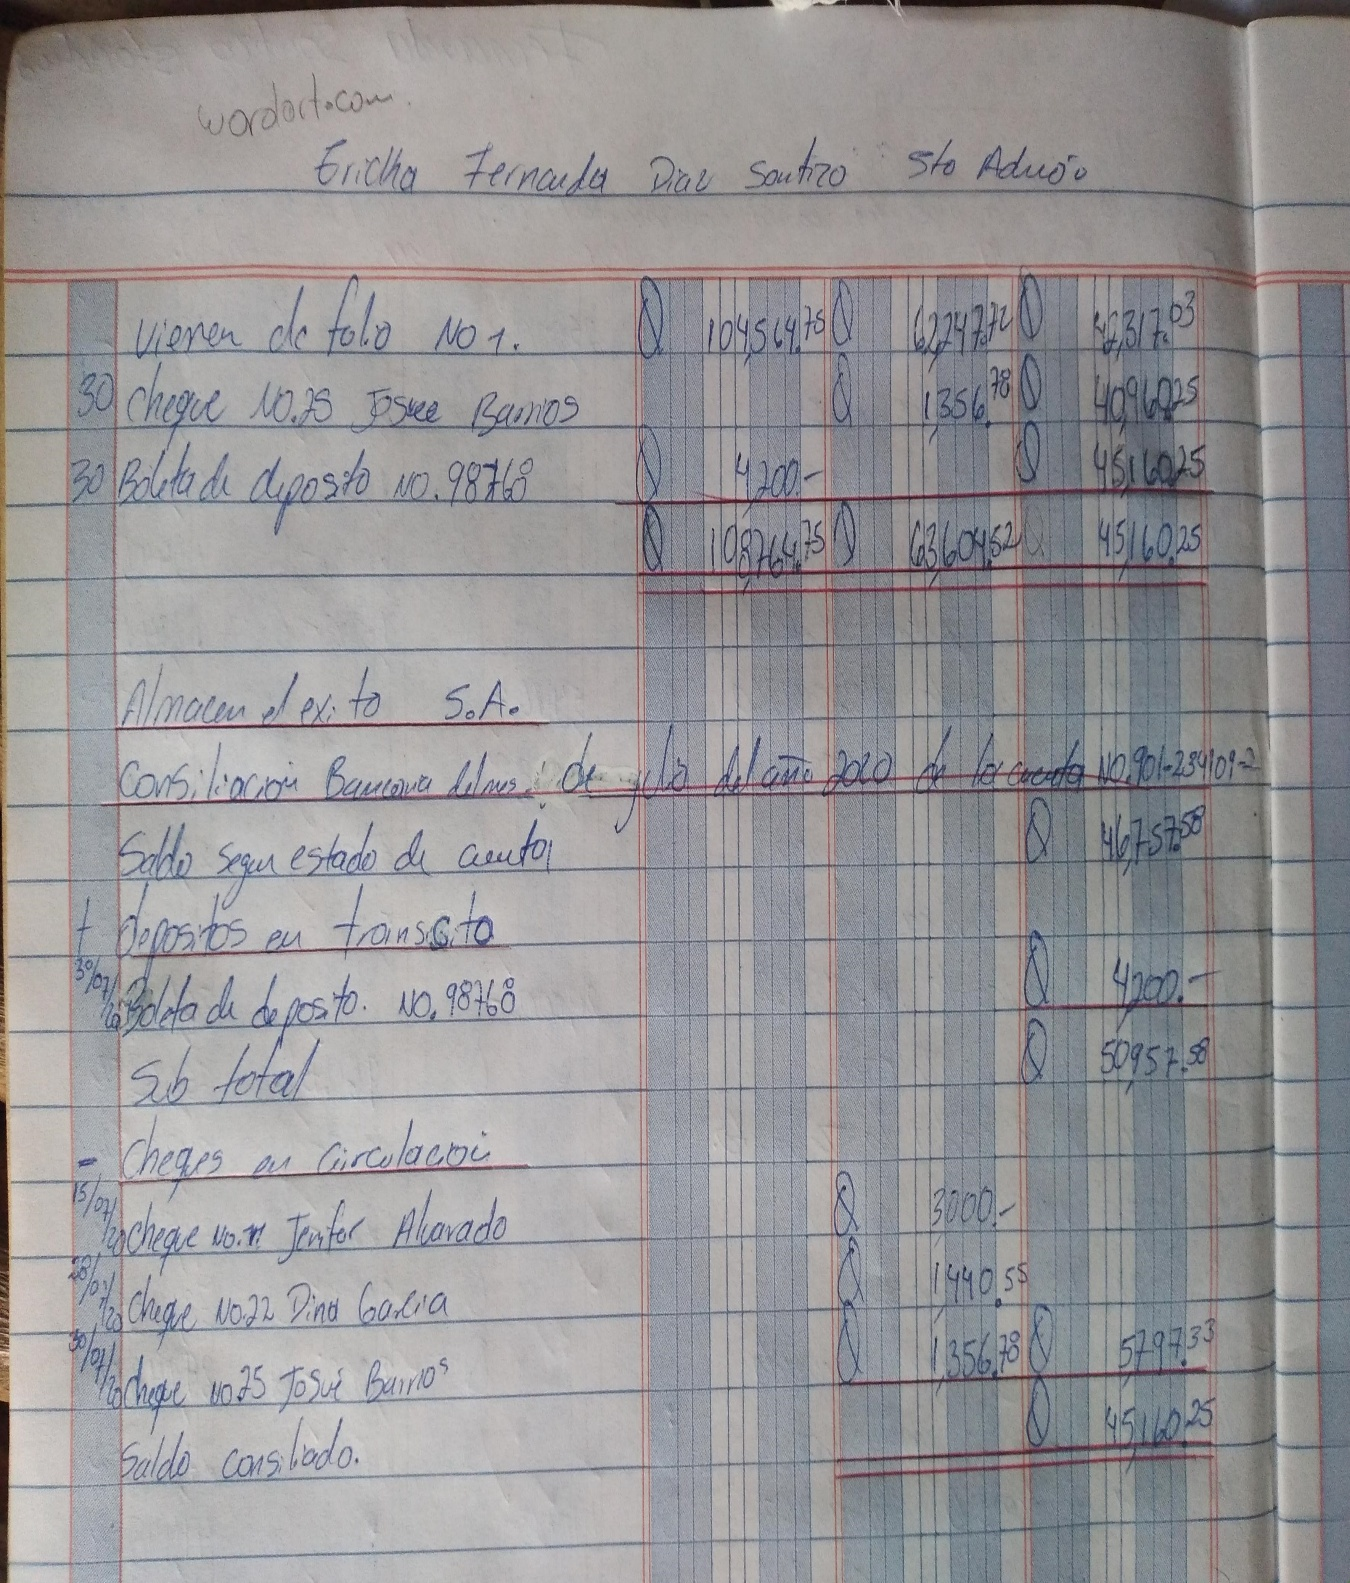 wordart.com.
Ericka Fernanda Diaz Santizo 5to Admón
Vienen de folio No 1. Q 104,564.75 Q 62,247.72 Q 42,317.03
30 Cheque No.25 Josue Barrios Q 1,356.78 Q 40,960.25
30 Boleta de deposito No.98768 Q 4,200.- Q 45,160.25
Q 108,764.75 Q 63,604.52 Q 45,160.25
Almacen el exito S.A.
Consiliacion Bancaria del mes de julio del año 2020 de la cuenta No.901-234101-2
Saldo segun estado de cuenta Q 46,757.58
+ depositos en transcito
30/07/20 Boleta de deposito. No.98768 Q 4,200.-
Sub total Q 50,957.58
- Cheqes en circulacion
15/07/20 Cheque No. Jenifer Alvarado Q 3000.-
28/07/20 Cheque No.22 Dina Garcia Q 1,440.55
30/07/20 Cheque No.25 Josue Barrios Q 1,356.78 Q 5,797.33
Saldo consiliado. Q 45,160.25